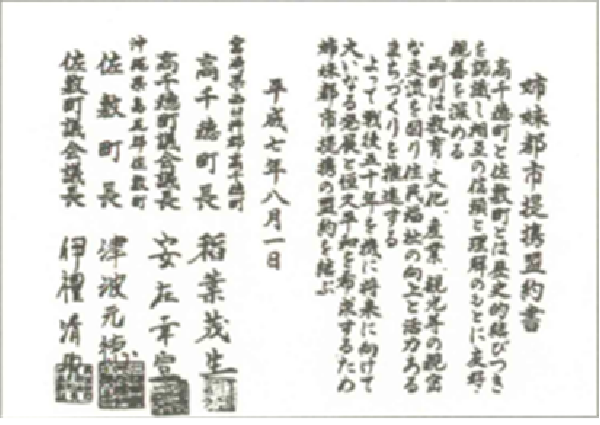 姉妹都市提携盟約書
高千穂町と佐敷町とは歴史的結びつき
を認識し相互の信頼と理解のもとに友好・
親善を深める
両町は教育・文化、産業、観光等の親密
な交流を図り住民福祉の向上と活力ある
まちづくりを推進する
よって戦後五十年を機に将来に向けて
大いなる発展と恒久平和を希求するため
姉妹都市提携の盟約を結ぶ
平成七年八月一日
宮崎県西臼杵郡高千穂町
高千穂町長 稲葉茂生
高千穂町議会議長
沖縄県島尻郡佐敷町
佐敷町長 津波元徳
佐敷町議会議長